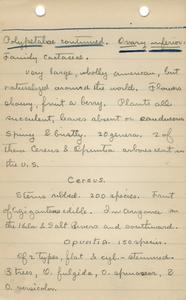 Polypetalae continued. Ovary inferior.
Family Cactaceae.
Very large, wholly american, but
naturalized around the world. Flowers
showy, fruit a berry. Plants all
succulent, leaves absent or caducous
spiny & bristly. 20 genera. 2 of
them Cereus & Opuntia arborescent in
the U.S.
Cereus.
Stems ribbed. 200 species. Fruit
of gigantens edible. In Arizona on
the Gila & Salt Rivers and southward.
Opuntia 150 species.
Of 2 types, flat & cyl-stemmed.
3 trees, O. fulgida, O. spinosior, &
O. versicolor.